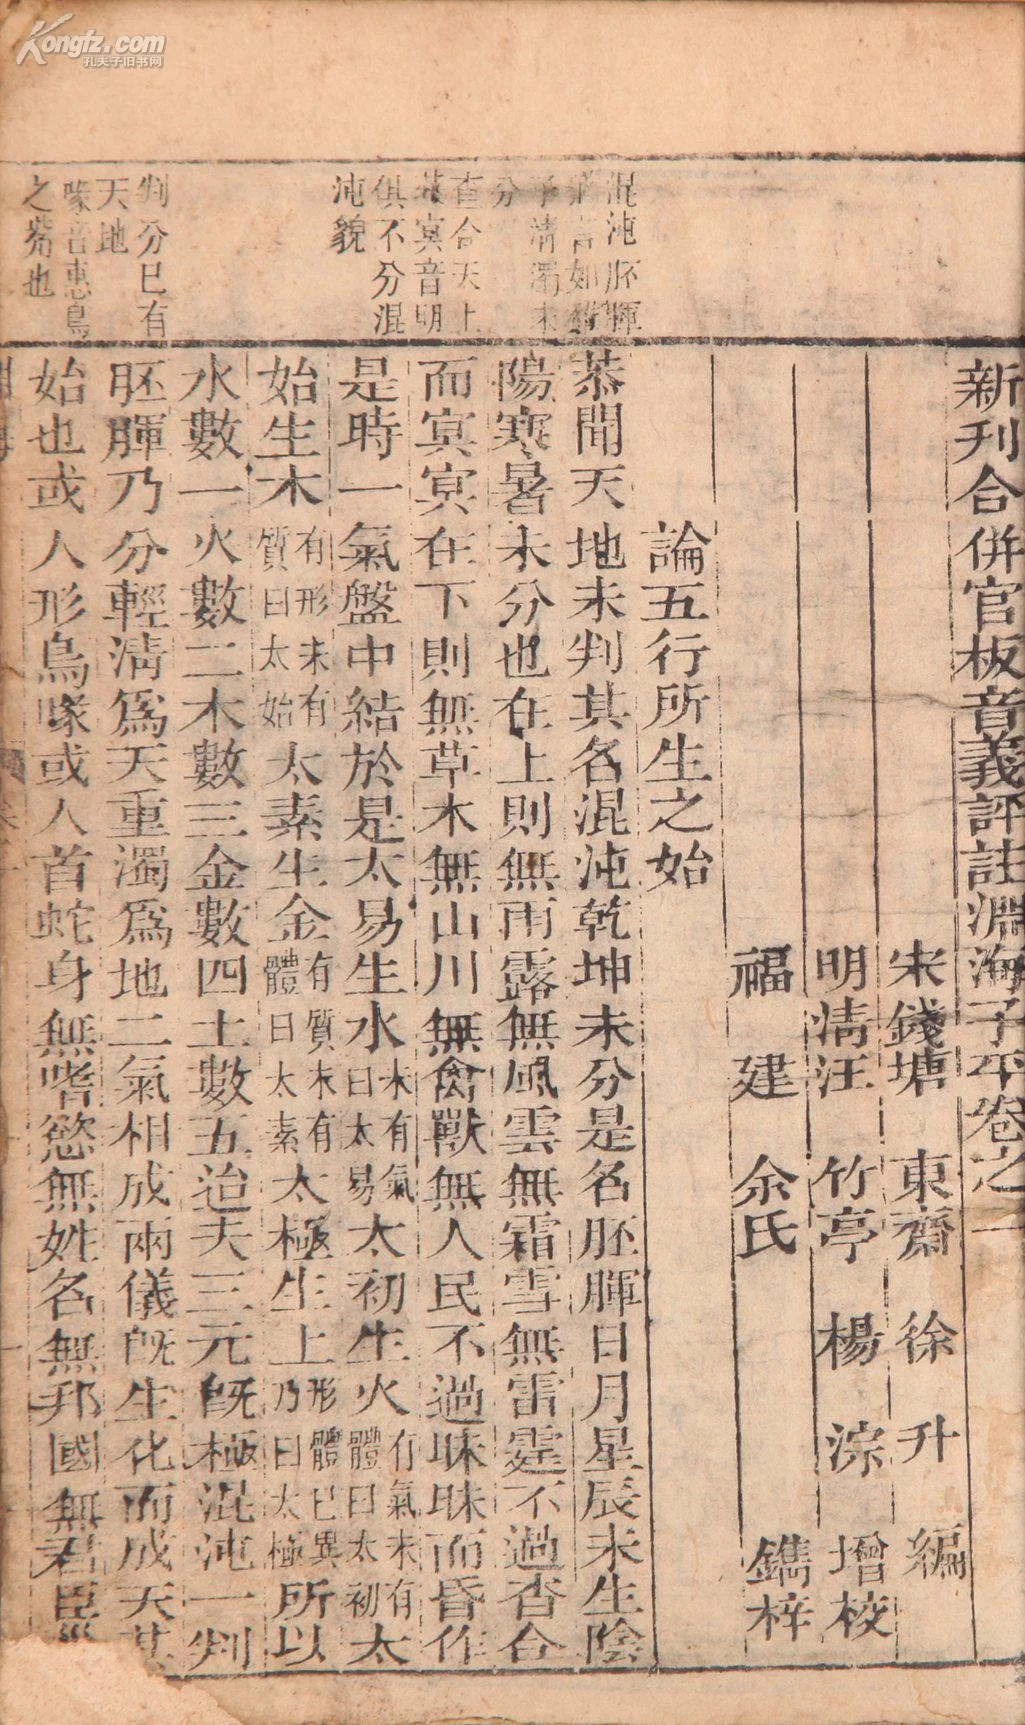 Kongfz.com
孔夫子旧书网
新刊合併官板音義評註淵海子平卷之一
宋錢塘 東齋 徐升 編
明清江 竹亭 楊淙 增校
福建 余氏 鐫梓
論五行所生之始
恭聞天地未判其名混沌乾坤未分是名胚腪日月星辰未生陰
陽寒暑未分也在上則無雨露無風雲無霜雪無雷霆不過杳合
而冥冥在下則無草木無山川無禽獸無人民不過昧昧而昏作
是時一氣盤中結於是太易生水未有氣曰太易太初生火有氣未有體曰太初太
始生木有形未有質曰太始太素生金有質未有體曰太素太極生土形體已異乃曰太極所以
水數一火數二木數三金數四土數五迨夫三元旣極混沌一判
胚腪乃分輕清爲天重濁爲地二氣相成兩儀旣生化而成天其
始也或人形鳥喙或人首蛇身無嗜慾無姓名無邦國無君臣
混沌胚腪
言如
子清濁未
分
杳合天上
冥音明
俱不分混
沌貌
判分已有
天地
喙音惠鳥
之觜也